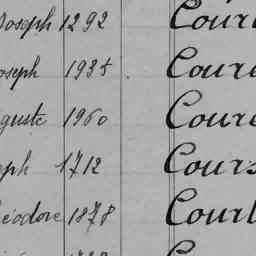 Joseph 1292 Cour
oseph 1935 Coure
guste 1960 Coure
ph 1712 Cours
éodore 1878 Court